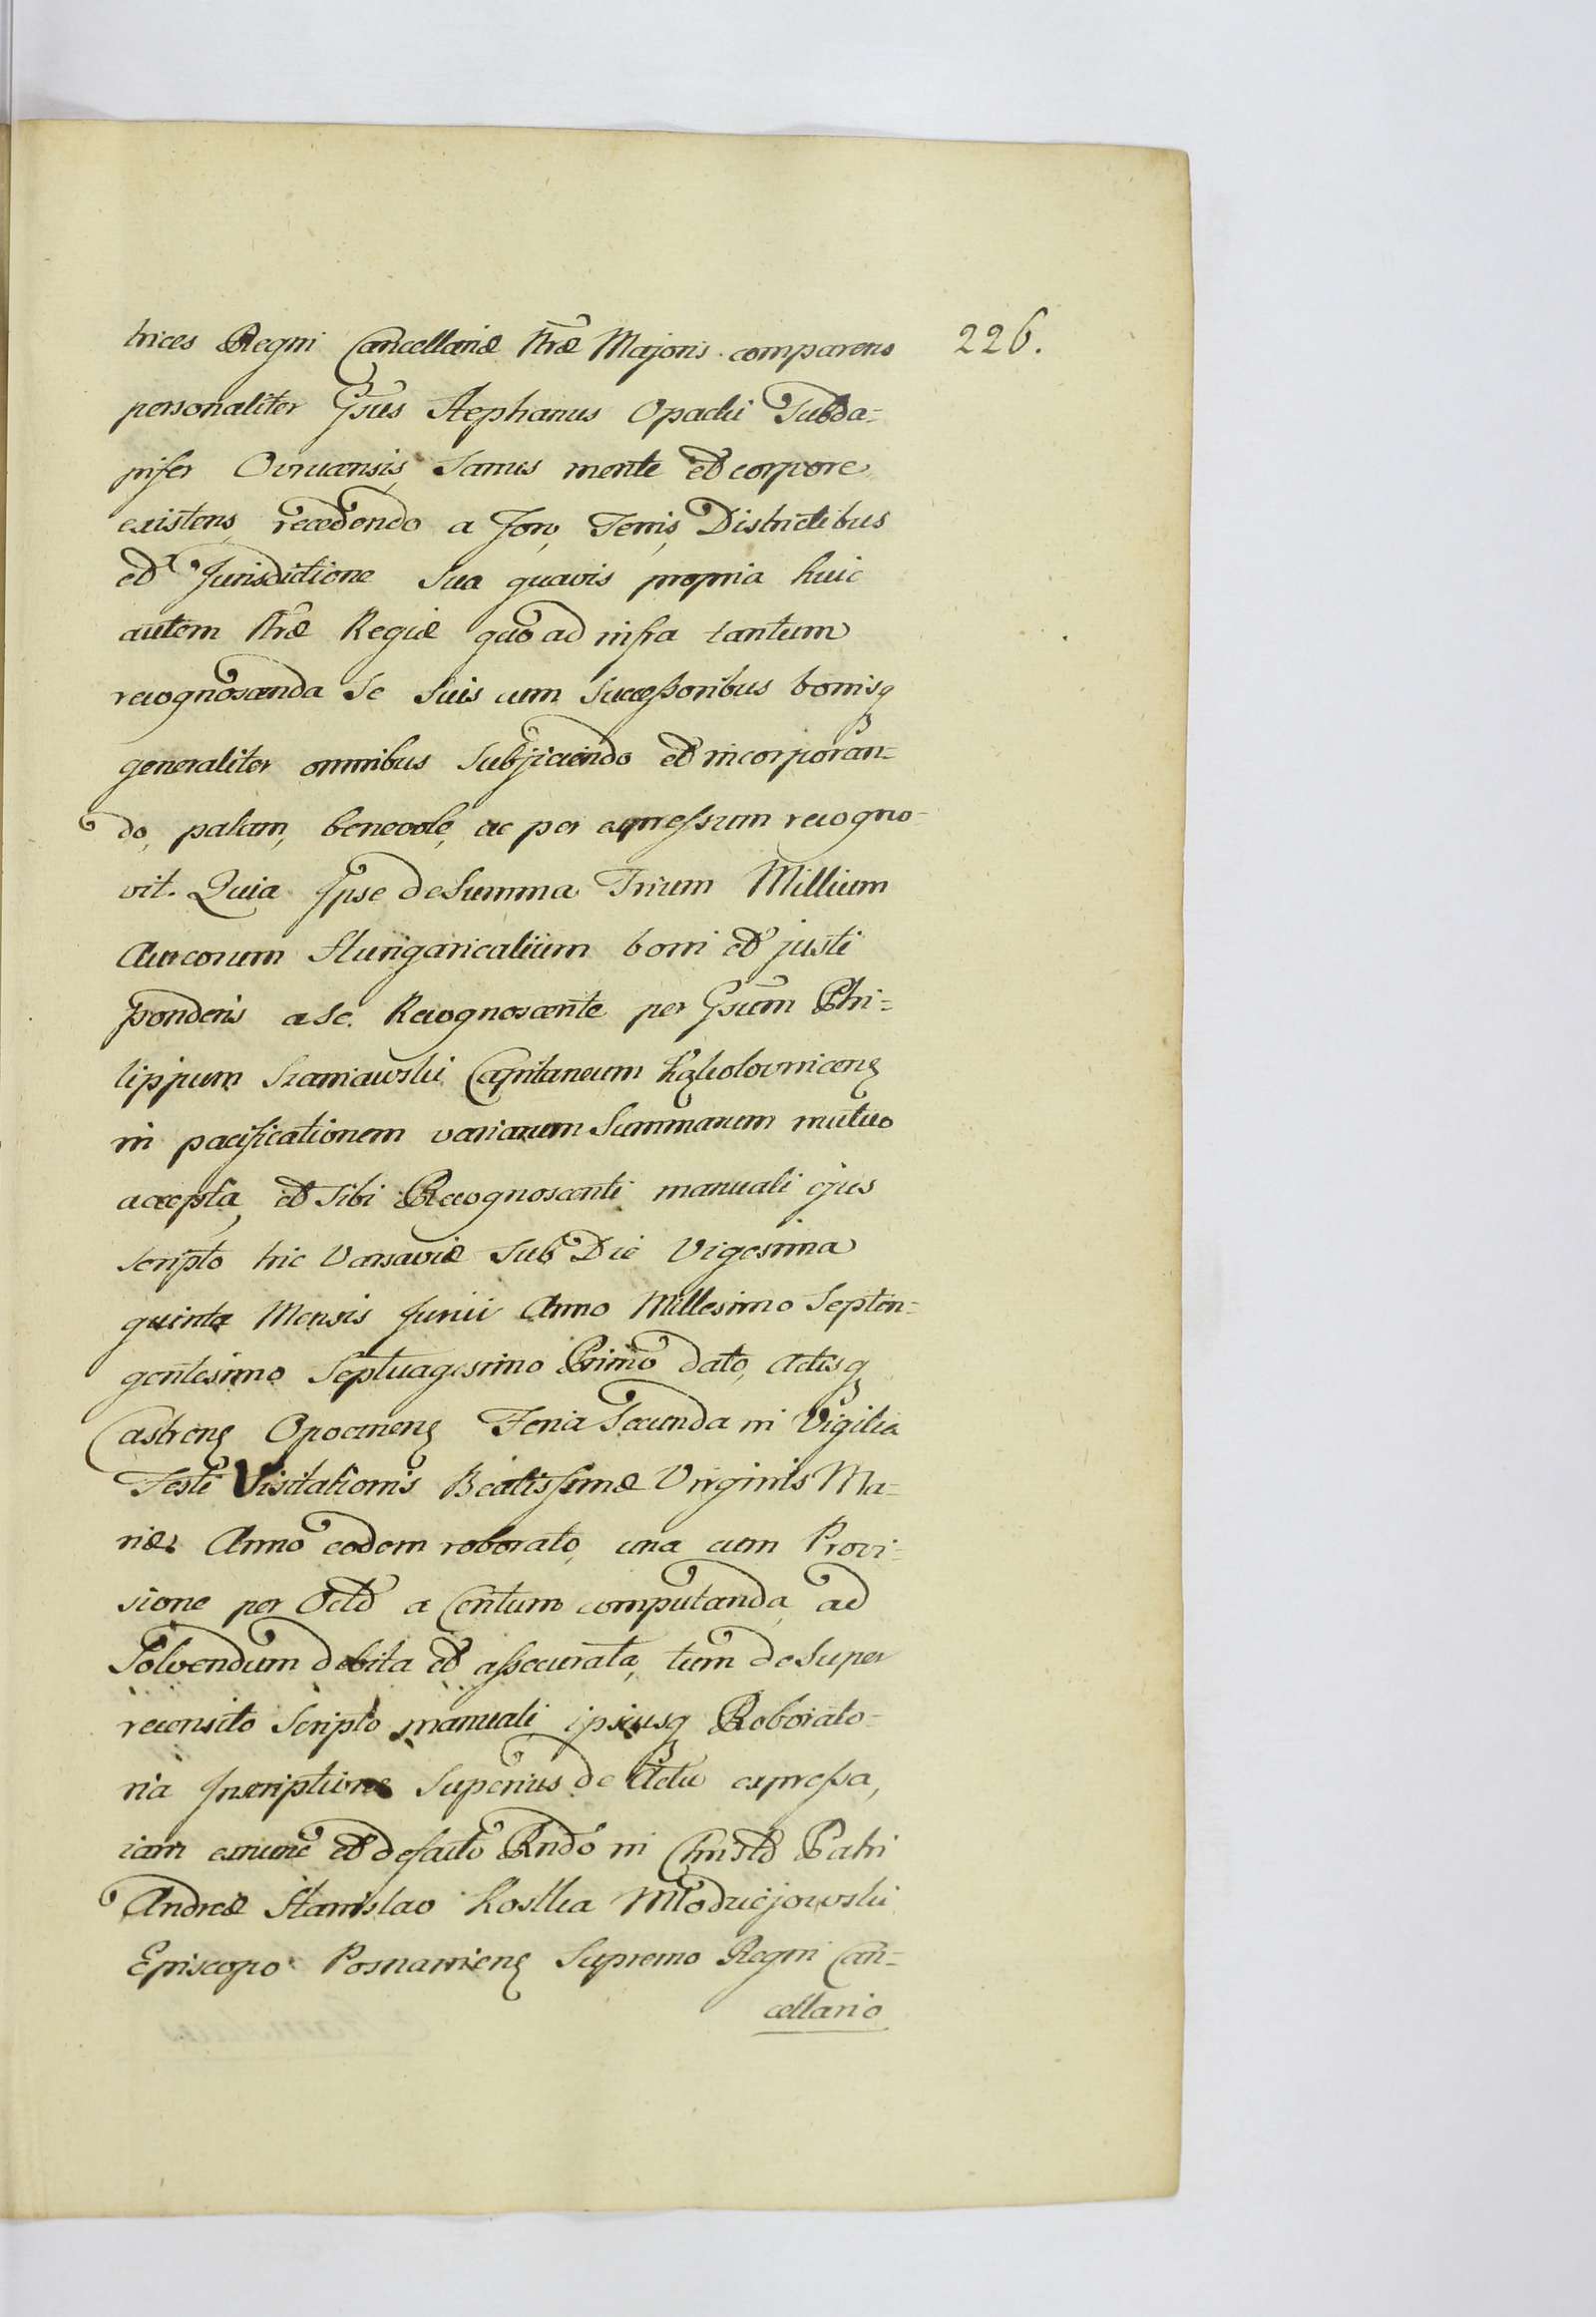 226.
trices Regni Cancellariæ Nræ Majoris comparens
personaliter Gsus Stephanus Opacki Subda=
pifer Ovruansis, Sanus mente et corpore
existens, recedendo a Foro, Terris, Districtibus
et Jurisdictione Sua quavis propria huic
autem Nræ Regiæ quo ad infra tantum
recognoscenda Se Suis cum Successoribus bonisq
generaliter omnibus Subjiciendo et incorporan=
do, palam, benevole, ac per expressum recogno-
vit. Quia Ipse de Summa Trium Millium
Aureorum Hungaricalium boni et justi
ponderis a Se Recognoscente per Gsum Phi=
lippum Szaniawski Capitaneum Kąkolovnicen
in pacificationem variarum Summarum mutuo
accepta, et Sibi Recognoscenti manuali ejus
scripto hic Varsaviæ Sub Die Vigesima
quinta Mensis Junii Anno Millesimo Septin=
gentesimo Septuagesimo Primo dato, Actisq
Castren Opocznen Feria Secunda in Vigilia
Festi Visitationis Beatissimæ Virginis Ma=
riæ Anno eodem roborato, una cum Provi=
sione per Octo a Centum computanda, ad
Solvendum debita et assecurata, tum de Super
recensito Scripto manuali ipsiusq Roborato=
ria Inscriptione Superius de Actu expressa,
iam exnunc et defacto Rndo in Christo Patri
Andreæ Stanislao Kostka Młodziejowski
Episcopo Posnanien Supremo Regni Can=
cellario